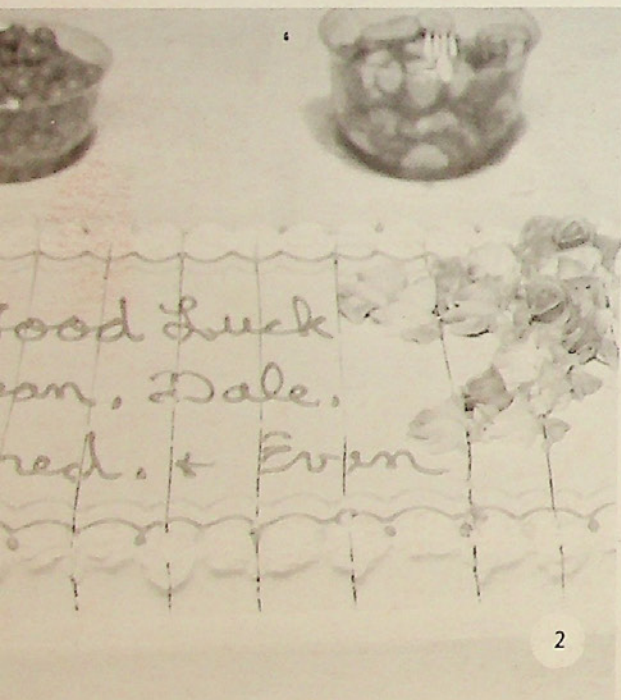 ood Luck
ean, Dale,
red, + Even
2